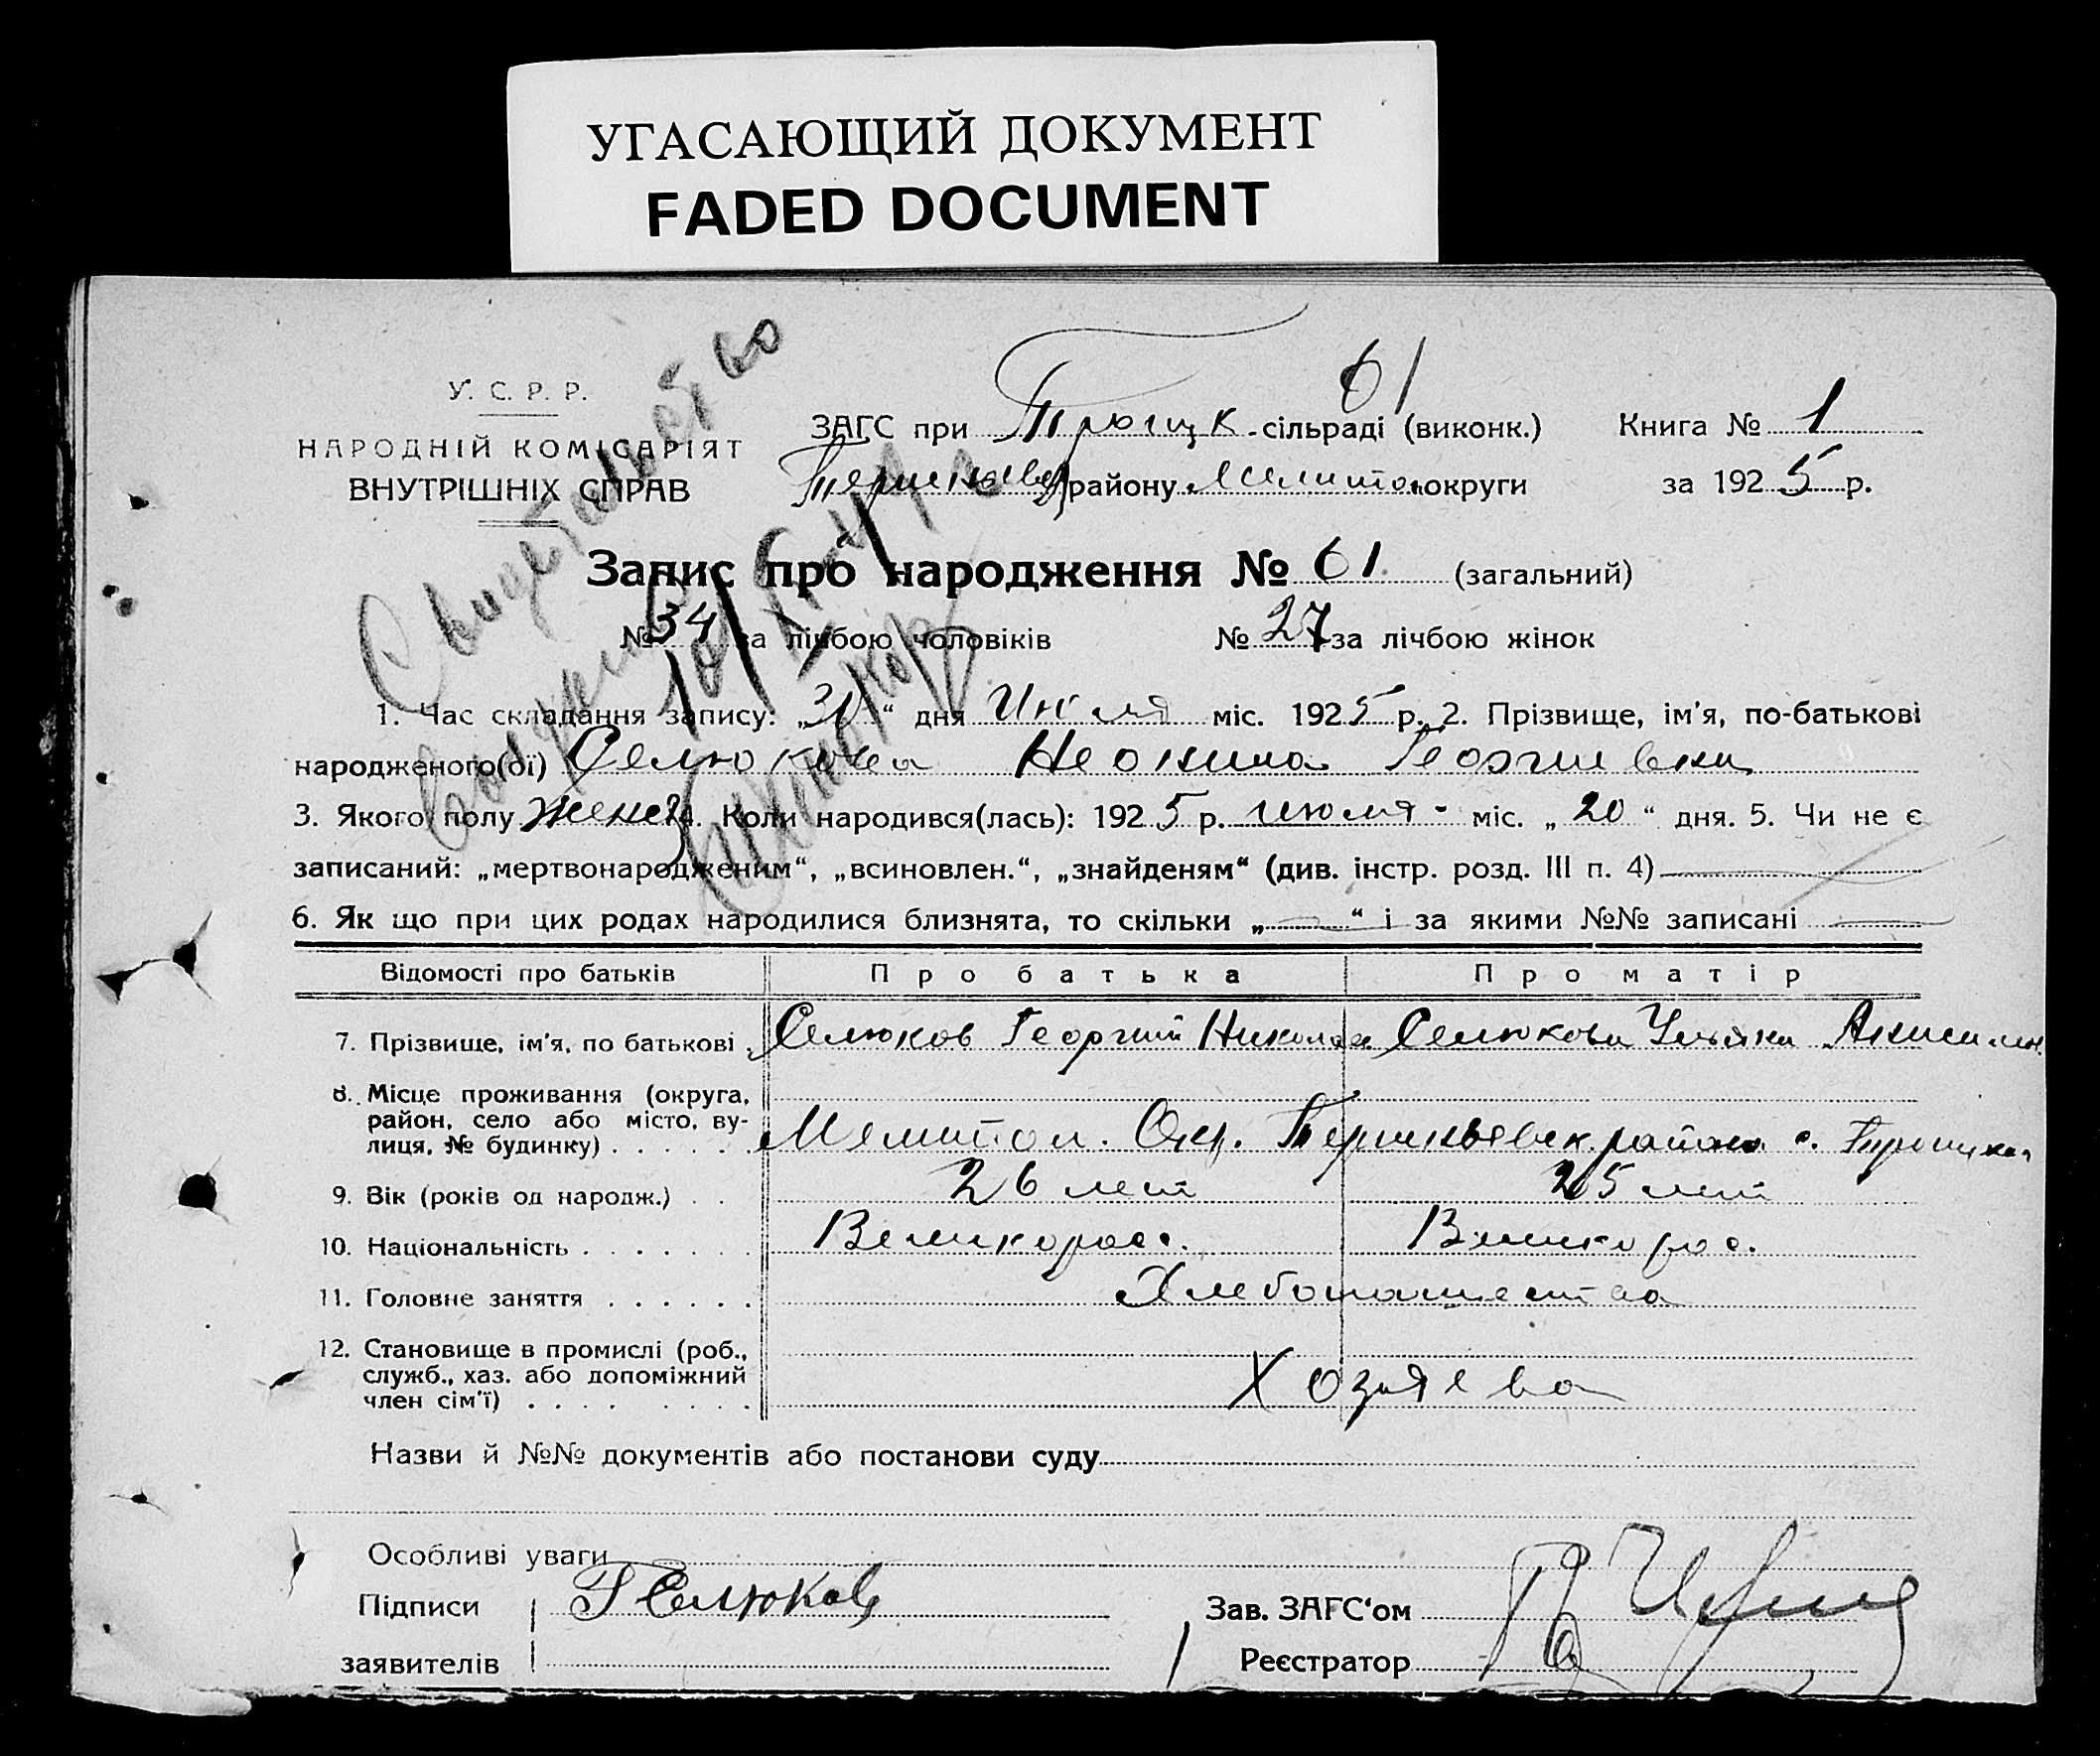 УГАСАЮЩИЙ ДОКУМЕНТ
FADED DOCUMENT
У. С. Р. Р.
НАРОДНІЙ КОМІСАРІЯТ
ВНУТРІШНІХ СПРАВ
61
ЗАГС при Троицк. сільраді (виконк.)
району Мелитоп. округи
Книга № 1
за 1925 р.
Свидетельство
Запис про народження № 61 (загальний)
№ 34 за лічбою чоловіків № 27 за лічбою жінок
1. Час складання запису: „30“ дня Июля міс. 1925 р. 2. Прізвище, ім'я, по-батькові
народженого(ої) Селюкова Георгиевна
3. Якого полу женск 4. Коли народився(лась): 1925 р. июля міс. „20“ дня. 5. Чи не є
записаний: „мертвонародженим“, „всиновлен.“, „знайденям“ (див. інстр. розд. III п. 4)
6. Як що при цих родах народилися близнята, то скільки „ “ і за якими №№ записані
Відомості про батьків Про батька Про матір
7. Прізвище, ім'я, по батькові. Селюков Георгий Николая Селюкова
8. Місце проживання (округа,
район, село або місто, ву-
лиця, № будинку) . . . . . . Мелитоп. Окр. района с. Троицкая
9. Вік (років од народж.) . . 26 лет 25 лет
10. Національність . . . . . . . Великорос. Великорос.
11. Головне заняття . . . . . . Хлебопашества
12. Становище в промислі (роб.,
служб., хаз. або допоміжний
член сім'ї) . . . . . . . . Хозяева
Назви й №№ документів або постанови суду
Особливі уваги
Підписи Г Селюков
заявителів
Зав. ЗАГС'ом
Реєстратор